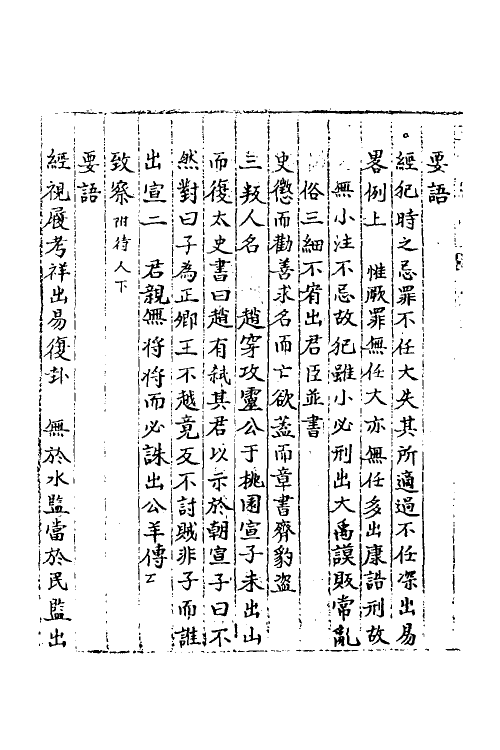 要語
經犯時之忌罪不任大失其所適過不任深出易
畧例上 惟厥罪無任大亦無任多出康誥刑故
無小注不忌故犯雖小必刑出大禹謨敗常亂
俗三細不宥出君臣並書
史懲而勸善求名而亡欲蓋而章書齊豹盜
三叛人名 趙穿攻靈公于桃園宣子未出山
而復太史書曰趙有弑其君以示於朝宣子曰不
然對曰子為正卿王不越竟反不討賊非子而誰
出宣二 君親無將將而必誅出公羊傳
致察附待人下
要語
經視履考祥出易復卦 無於水監當於民監出